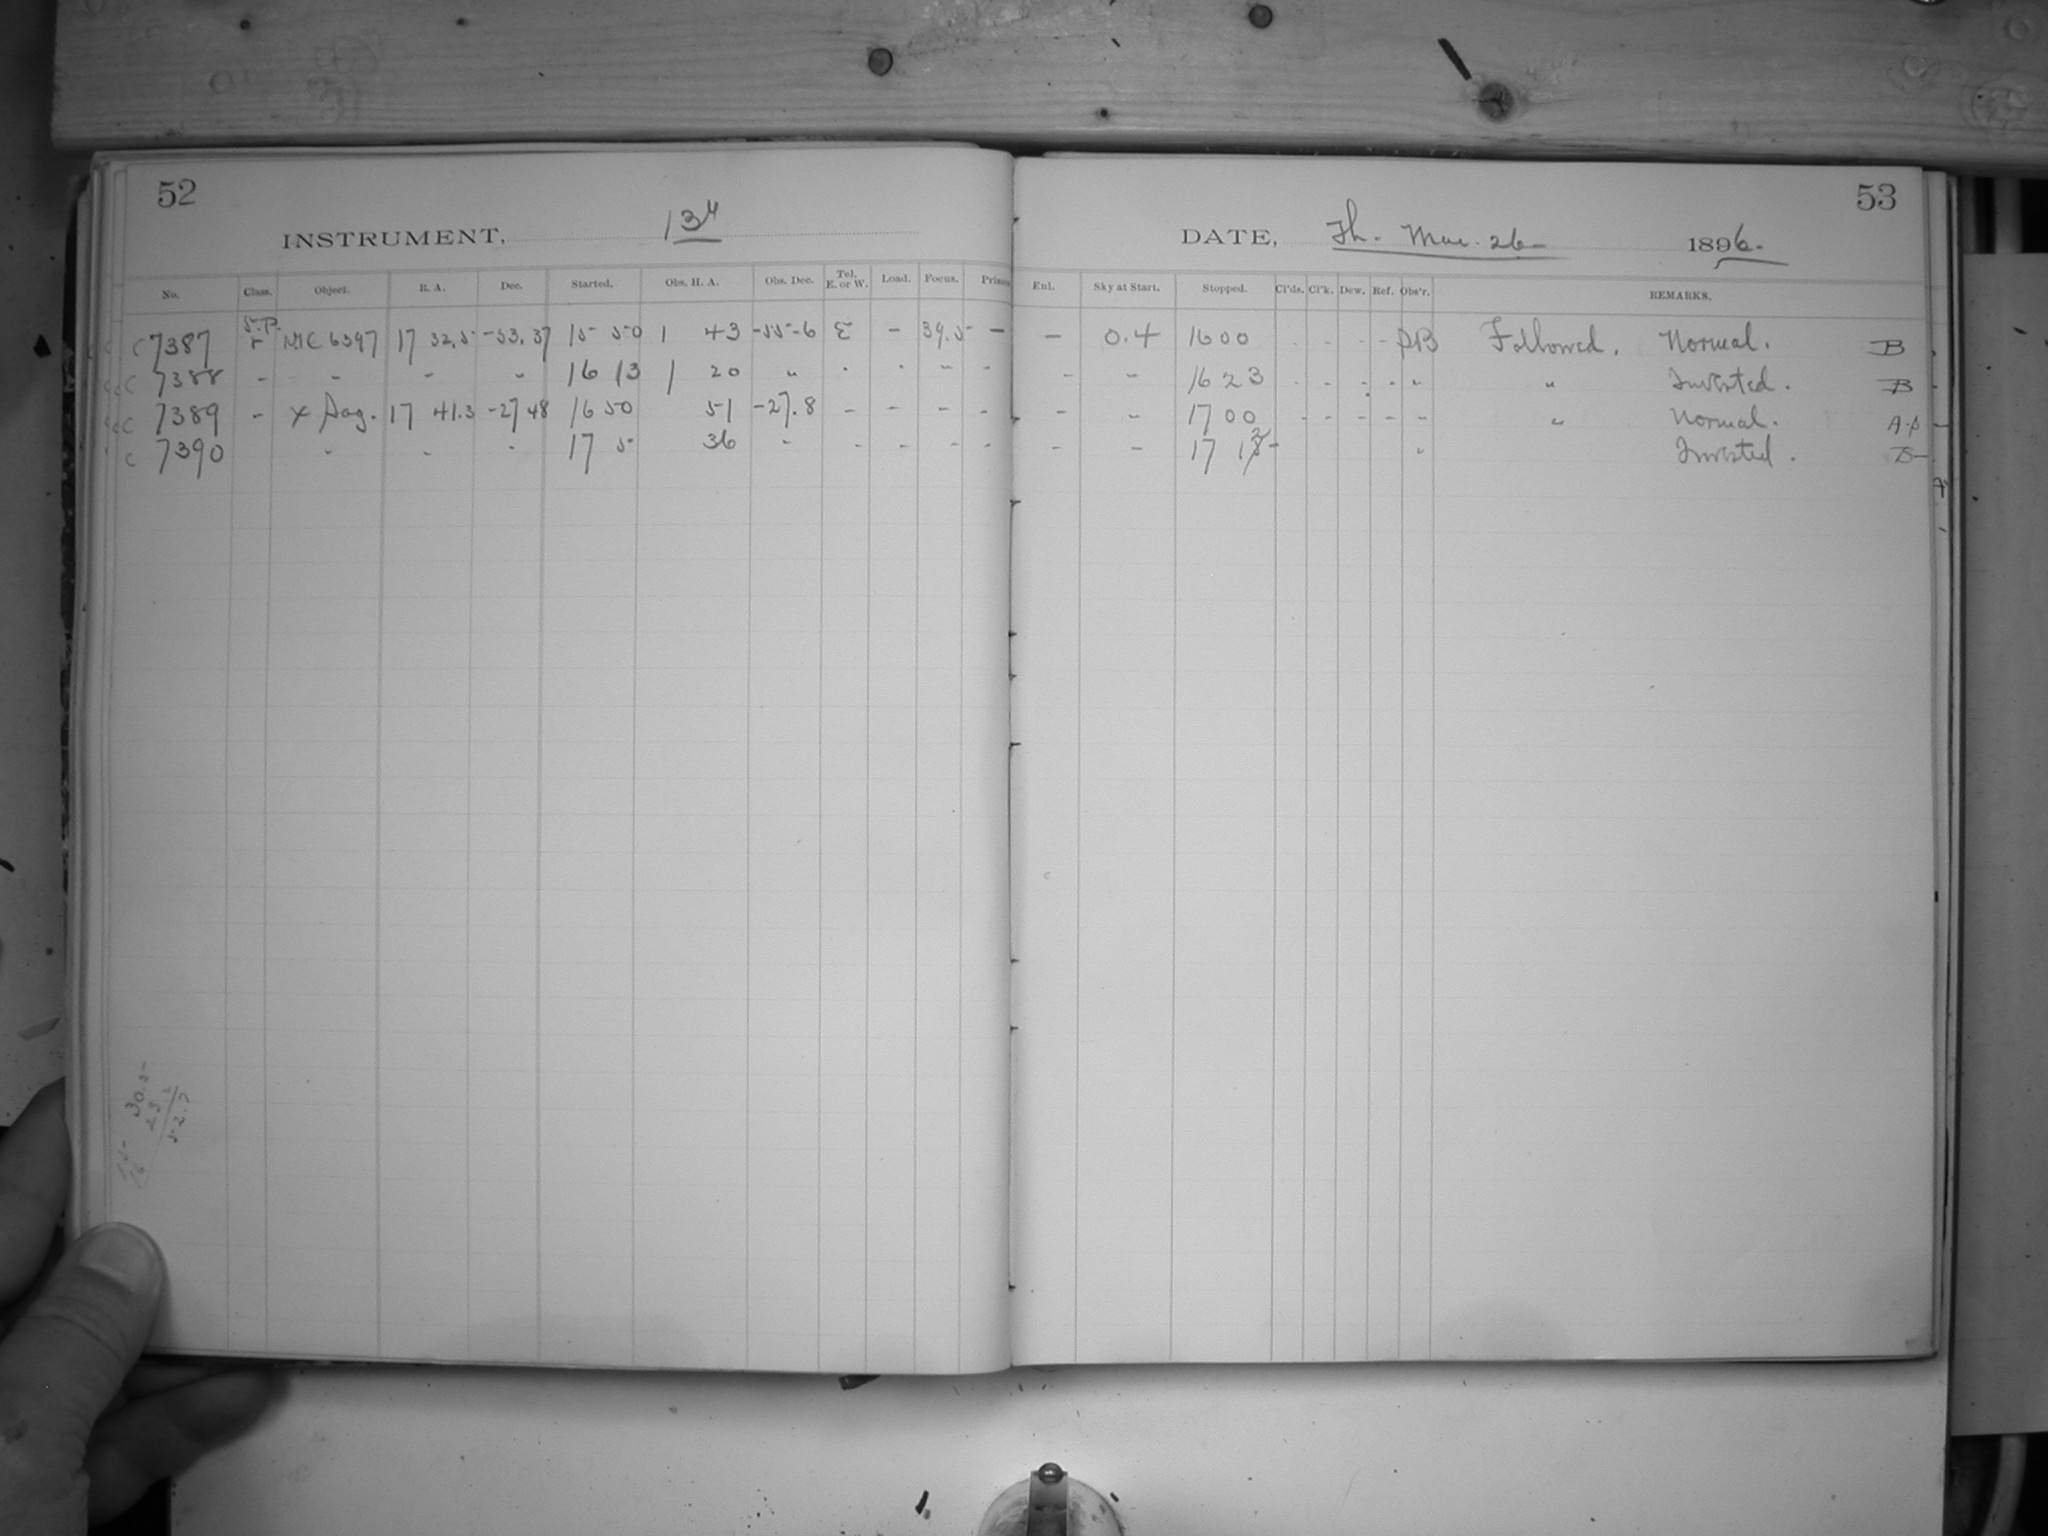 52
INSTRUMENT, 13"
No. Class. Object. R. A. Dec. Started. Obs. H. A. Obs. Dec. Tel. E. or W. Load. Focus. Prism
C 7387 S.P. r NGC 6397 17 32.5 -53.37 15 50 1 43 -55-6 E - 39.5 -
C 7388 " " " " 16 13 1 20 " " " " "
C 7389 " X Sag. 17 41.3 -27 48 16 50 51 -27.8 - - - -
C 7390 " " " 17 5 36 " - - - -
30.5
23.2
52.7
53
DATE, Th. Mar. 26 1896.
Enl. Sky at Start. Stopped. Cl'ds. Cl'k. Dew. Ref. Obs'r. REMARKS.
- 0.4 16 00 Followed. Normal. B
- " 16 23 " " Inverted. B
- " 17 00 - - - - - " Normal.
- - 17 12 " Inverted.